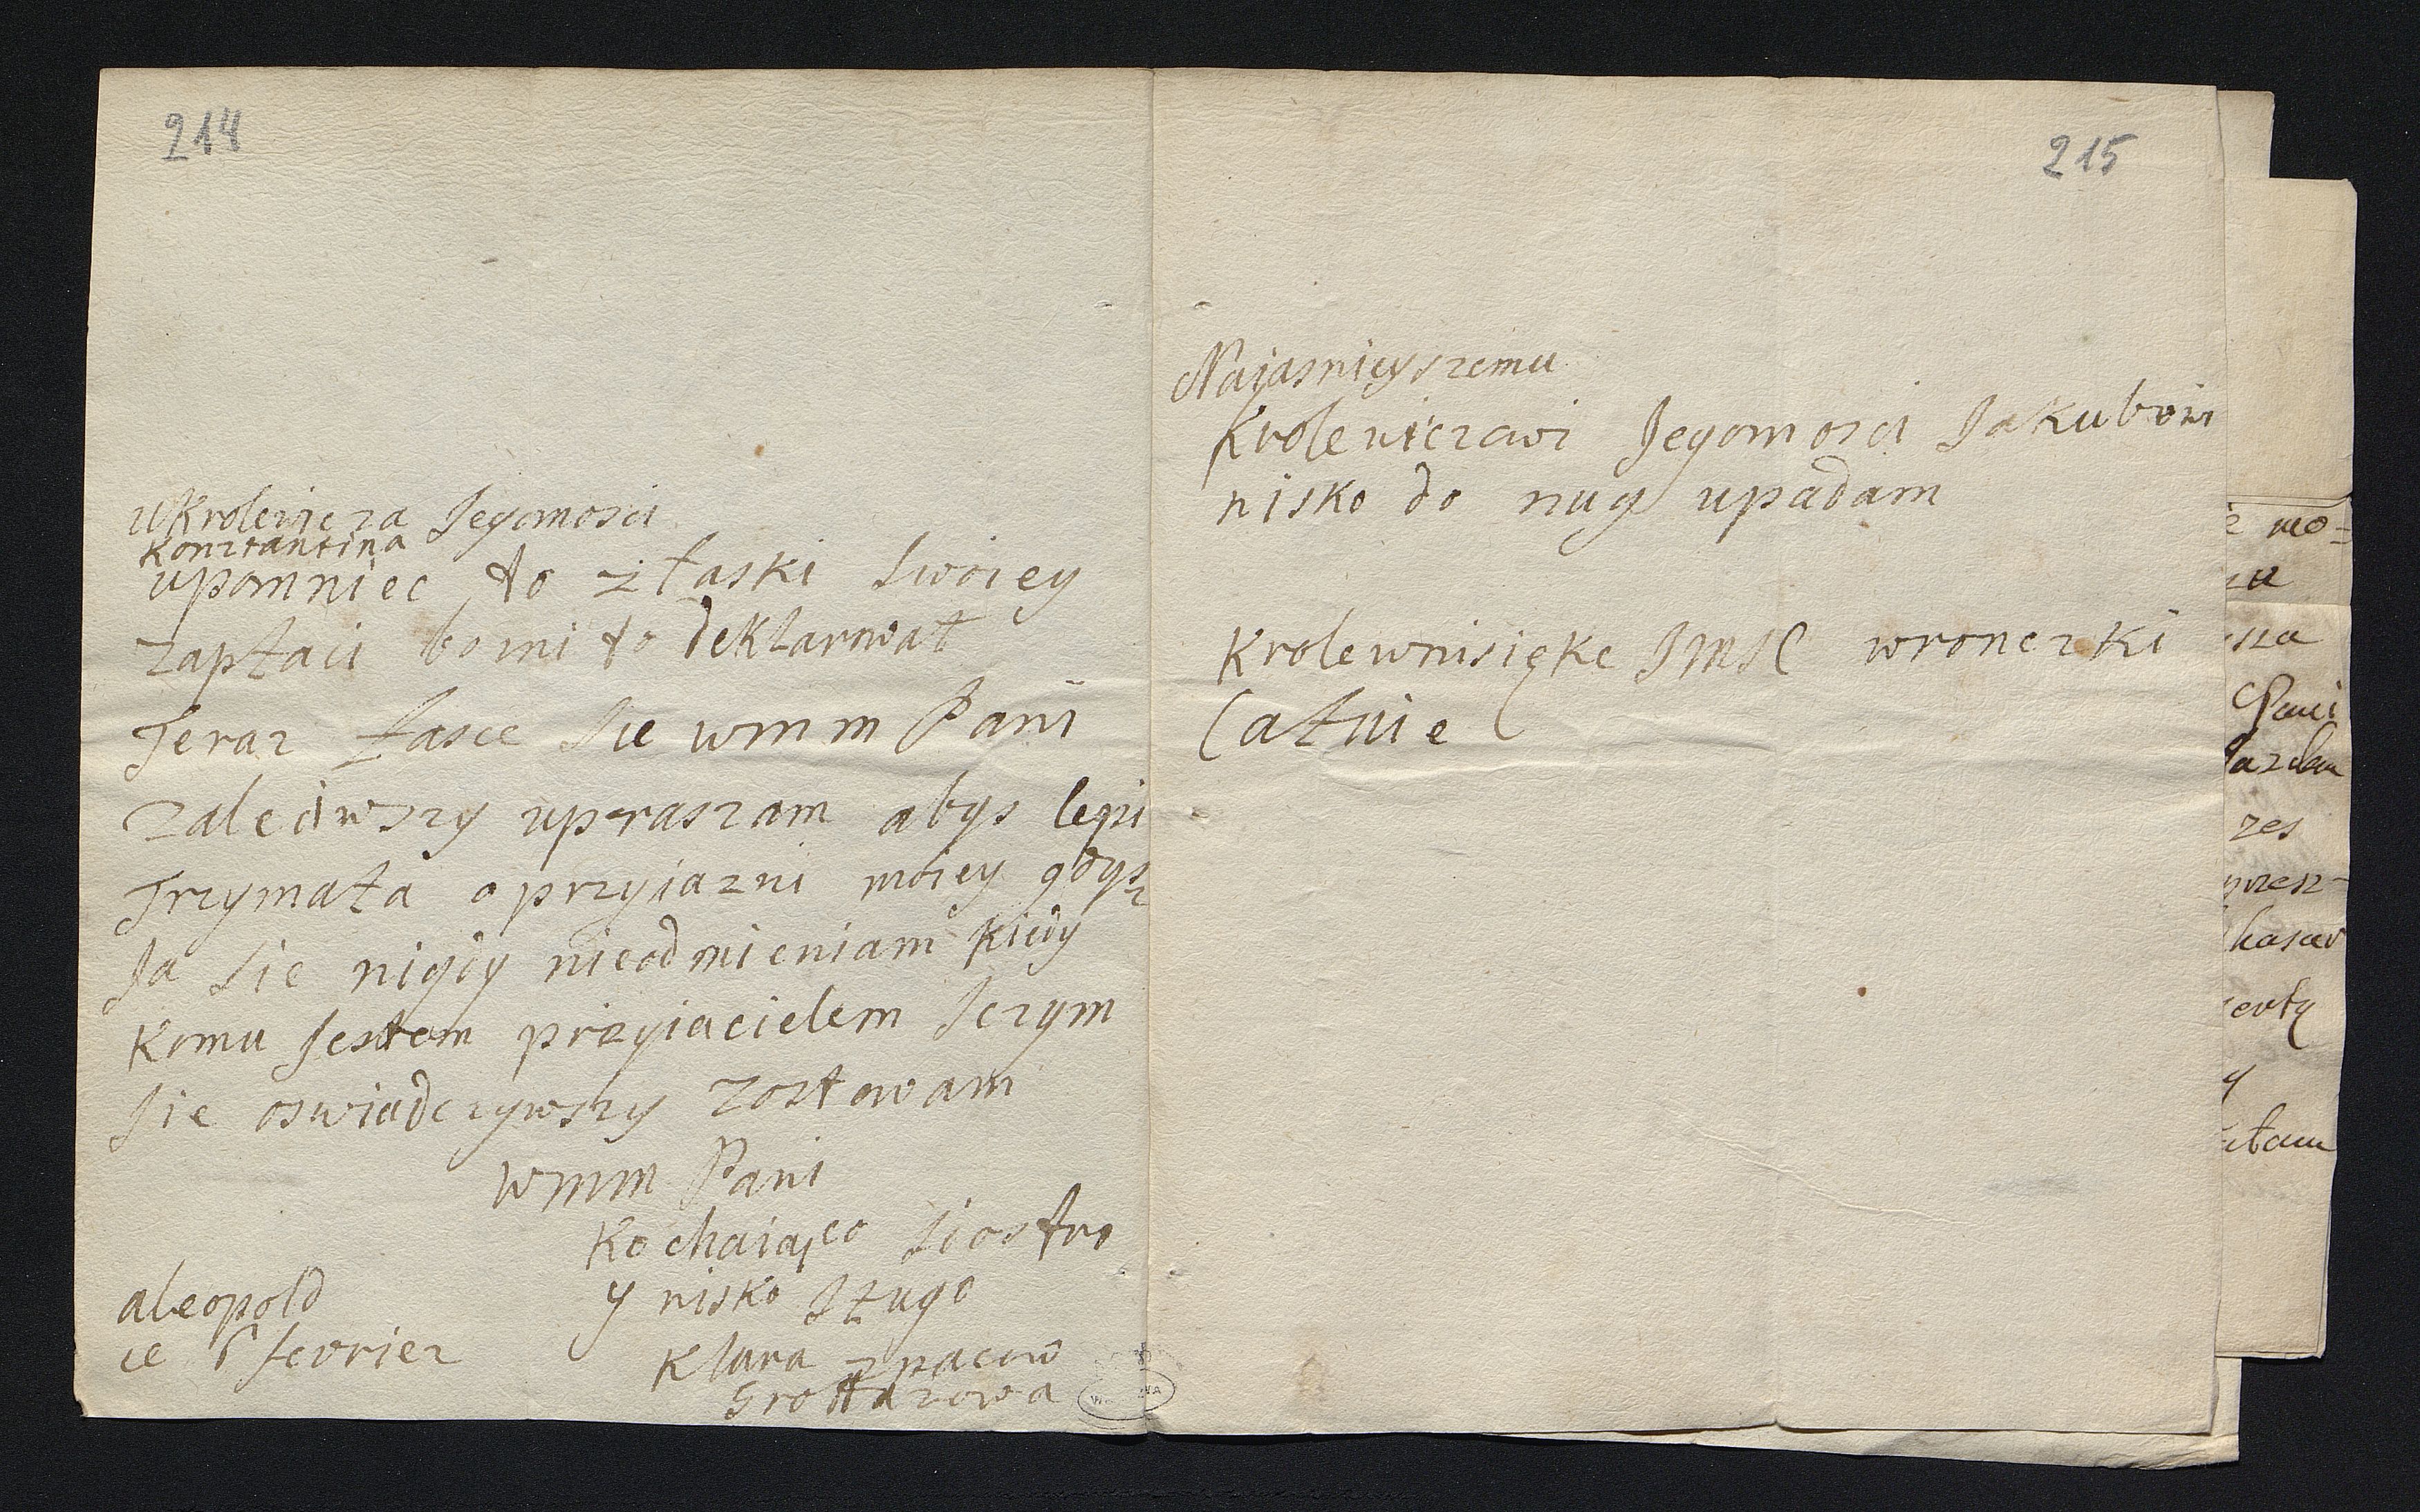 214
uKrolewicza Jegomosci
Konstantina
upomniec to z łaski swoiey
zapłaci bo mi to deklarował
Teraz łasce sie wmm Pani
zaleciwszy upraszam abys lepi
Trzymała o przyiazni moiey gdysz
Ja sie nigdy nieodmieniam kiedy
komu Jestem przyiacielem Sczym
sie oswiadczywszy zostowam
wmm Pani
Kochaiąco siostro
y nisko sługo
Klara z pacow
Grottazowa
aleopold
ce 6 fevrier
215
Najasnieyszemu
Krolewiczowi Jegomosci Jakubowi
nisko do nug upadam
Krolewnisięke JMSC wronczki
Całuie